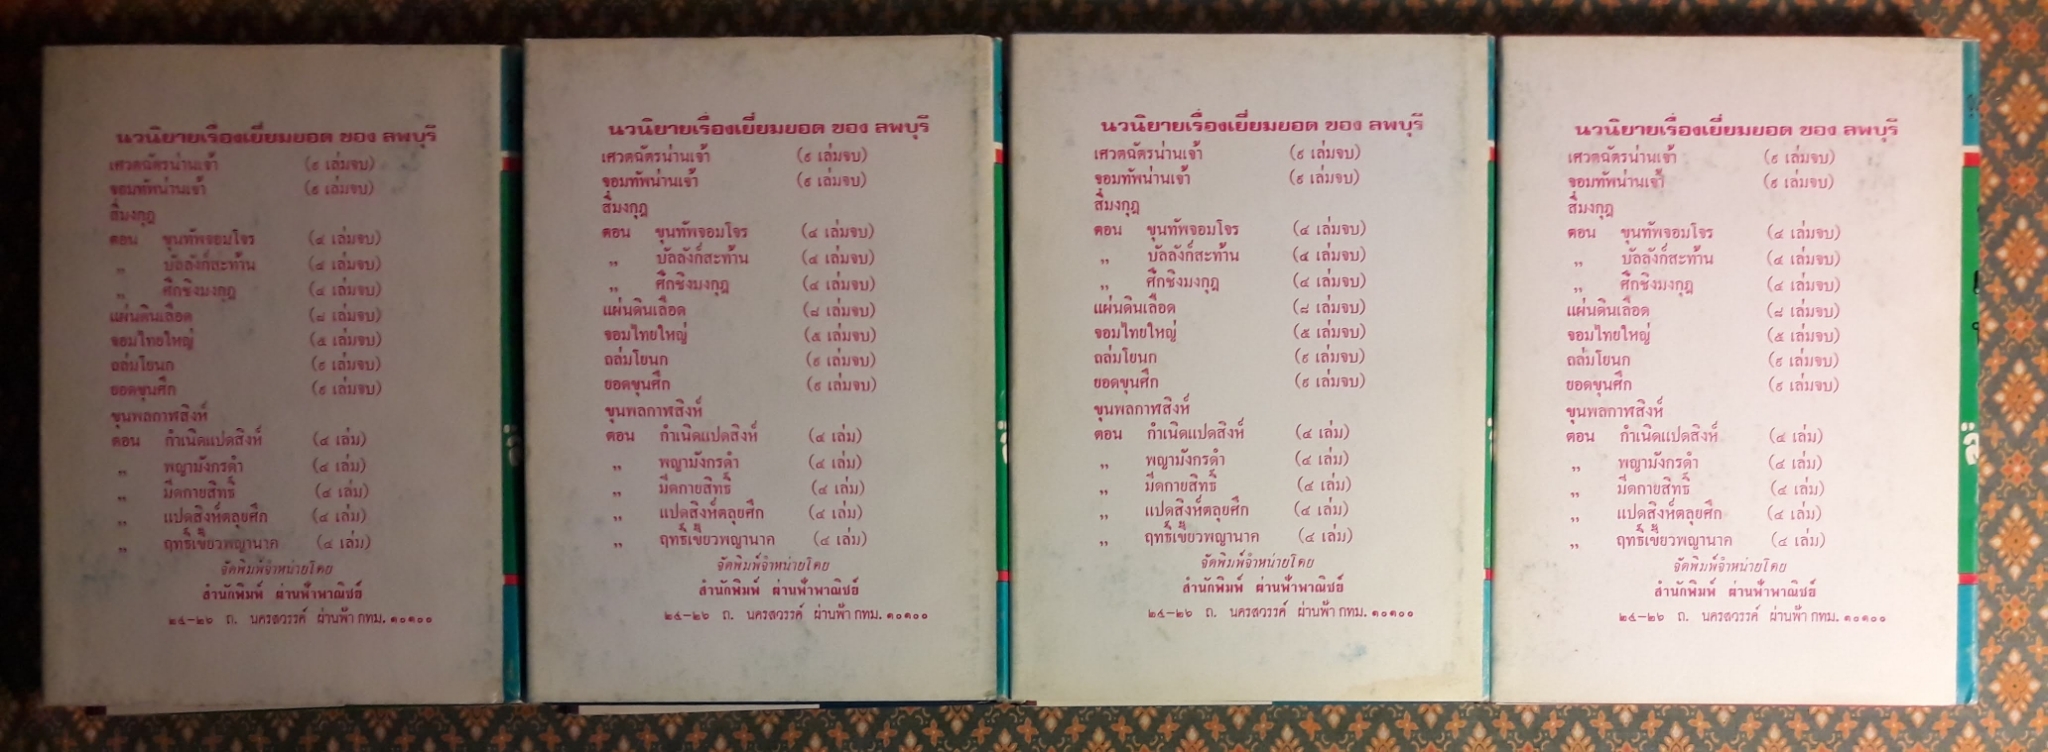 นวนิยายเรื่องเยี่ยมยอด ของ ลพบุรี
เศวตฉัตรน่านเจ้า (๙ เล่มจบ)
จอมทัพน่านเจ้า (๙ เล่มจบ)
สี่มงกุฎ
ตอน ขุนทัพจอมโจร (๔ เล่มจบ)
„ บัลลังก์สะท้าน (๔ เล่มจบ)
„ ศึกชิงมงกุฎ (๔ เล่มจบ)
แผ่นดินเลือด (๘ เล่มจบ)
จอมไทยใหญ่ (๕ เล่มจบ)
ถล่มโยนก (๙ เล่มจบ)
ยอดขุนศึก (๙ เล่มจบ)
ขุนพลกาฬสิงห์
ตอน กำเนิดแปดสิงห์ (๔ เล่ม)
„ พญามังกรดำ (๔ เล่ม)
„ มีดกายสิทธิ์ (๔ เล่ม)
„ แปดสิงห์ตลุยศึก (๔ เล่ม)
„ ฤทธิ์เขี้ยวพญานาค (๔ เล่ม)
จัดพิมพ์จำหน่ายโดย
สำนักพิมพ์ ผ่านฟ้าพาณิชย์
๒๔-๒๖ ถ. นครสวรรค์ ผ่านฟ้า กทม. ๑๐๑๐๐
นวนิยายเรื่องเยี่ยมยอด ของ ลพบุรี
เศวตฉัตรน่านเจ้า (๙ เล่มจบ)
จอมทัพน่านเจ้า (๙ เล่มจบ)
สี่มงกุฎ
ตอน ขุนทัพจอมโจร (๔ เล่มจบ)
„ บัลลังก์สะท้าน (๔ เล่มจบ)
„ ศึกชิงมงกุฎ (๔ เล่มจบ)
แผ่นดินเลือด (๘ เล่มจบ)
จอมไทยใหญ่ (๕ เล่มจบ)
ถล่มโยนก (๙ เล่มจบ)
ยอดขุนศึก (๙ เล่มจบ)
ขุนพลกาฬสิงห์
ตอน กำเนิดแปดสิงห์ (๔ เล่ม)
„ พญามังกรดำ (๔ เล่ม)
„ มีดกายสิทธิ์ (๔ เล่ม)
„ แปดสิงห์ตลุยศึก (๔ เล่ม)
„ ฤทธิ์เขี้ยวพญานาค (๔ เล่ม)
จัดพิมพ์จำหน่ายโดย
สำนักพิมพ์ ผ่านฟ้าพาณิชย์
๒๔-๒๖ ถ. นครสวรรค์ ผ่านฟ้า กทม. ๑๐๑๐๐
นวนิยายเรื่องเยี่ยมยอด ของ ลพบุรี
เศวตฉัตรน่านเจ้า (๙ เล่มจบ)
จอมทัพน่านเจ้า (๙ เล่มจบ)
สี่มงกุฎ
ตอน ขุนทัพจอมโจร (๔ เล่มจบ)
„ บัลลังก์สะท้าน (๔ เล่มจบ)
„ ศึกชิงมงกุฎ (๔ เล่มจบ)
แผ่นดินเลือด (๘ เล่มจบ)
จอมไทยใหญ่ (๕ เล่มจบ)
ถล่มโยนก (๙ เล่มจบ)
ยอดขุนศึก (๙ เล่มจบ)
ขุนพลกาฬสิงห์
ตอน กำเนิดแปดสิงห์ (๔ เล่ม)
„ พญามังกรดำ (๔ เล่ม)
„ มีดกายสิทธิ์ (๔ เล่ม)
„ แปดสิงห์ตลุยศึก (๔ เล่ม)
„ ฤทธิ์เขี้ยวพญานาค (๔ เล่ม)
จัดพิมพ์จำหน่ายโดย
สำนักพิมพ์ ผ่านฟ้าพาณิชย์
๒๔-๒๖ ถ. นครสวรรค์ ผ่านฟ้า กทม. ๑๐๑๐๐
นวนิยายเรื่องเยี่ยมยอด ของ ลพบุรี
เศวตฉัตรน่านเจ้า (๙ เล่มจบ)
จอมทัพน่านเจ้า (๙ เล่มจบ)
สี่มงกุฎ
ตอน ขุนทัพจอมโจร (๔ เล่มจบ)
„ บัลลังก์สะท้าน (๔ เล่มจบ)
„ ศึกชิงมงกุฎ (๔ เล่มจบ)
แผ่นดินเลือด (๘ เล่มจบ)
จอมไทยใหญ่ (๕ เล่มจบ)
ถล่มโยนก (๙ เล่มจบ)
ยอดขุนศึก (๙ เล่มจบ)
ขุนพลกาฬสิงห์
ตอน กำเนิดแปดสิงห์ (๔ เล่ม)
„ พญามังกรดำ (๔ เล่ม)
„ มีดกายสิทธิ์ (๔ เล่ม)
„ แปดสิงห์ตลุยศึก (๔ เล่ม)
„ ฤทธิ์เขี้ยวพญานาค (๔ เล่ม)
จัดพิมพ์จำหน่ายโดย
สำนักพิมพ์ ผ่านฟ้าพาณิชย์
๒๔-๒๖ ถ. นครสวรรค์ ผ่านฟ้า กทม. ๑๐๑๐๐